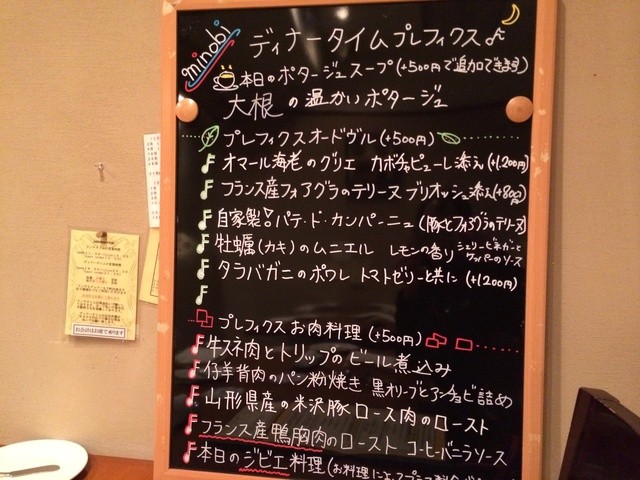 minobi
ディナータイムプレフィクス
本日のポタージュスープ(+500円で追加できます)
大根の温かいポタージュ
プレフィクスオードヴル(+500円)
オマール海老のグリエ カボチャピューレ添え(+1,200円)
フランス産フォアグラのテリーヌ ブリオッシュ添え(+800円)
自家製!パテ・ド・カンパーニュ(豚とフォアグラのテリーヌ)
牡蠣(カキ)のムニエル レモンの香り シェリービネガーとケッパーのソース
タラバガニのポワレ トマトゼリーと共に(+1200円)
プレフィクスお肉料理(+500円)
牛スネ肉とトリップのビール煮込み
仔羊背肉のパン粉焼き 黒オリーブとアンチョビ詰め
山形県産の米沢豚ロース肉のロースト
フランス産鴨胸肉のロースト コーヒーバニラソース
本日のジビエ料理(お料理によってプラス